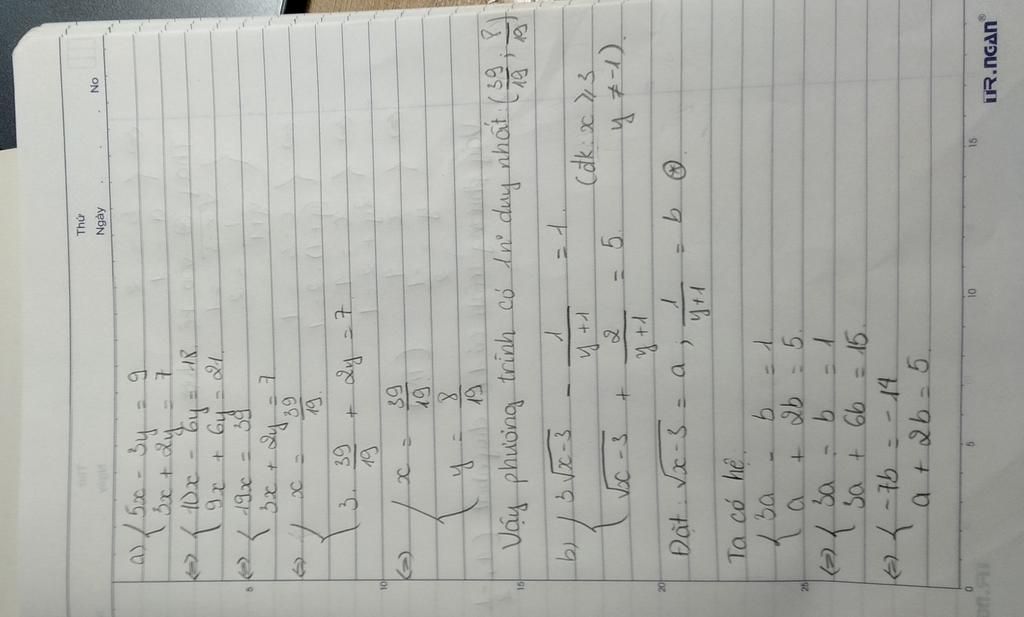 Thứ
Ngày . . No
a) { 5x - 3y = 9
3x + 2y = 7
⇔ { 10x - 6y = 18
9x + 6y = 21
⇔ { 19x = 39
3x + 2y = 7
⇔ { x = 39/19
3. 39/19 + 2y = 7
⇔ { x = 39/19
y = 8/19
Vậy phương trình có 1 n° duy nhất: (39/19 ; 8/19)
b) { 3√x-3 - 1/y+1 = 1 (đk: x ≥ 3
√x-3 + 2/y+1 = 5 y ≠ -1)
Đặt: √x-3 = a, 1/y+1 = b ⊛
Ta có hệ
{ 3a - b = 1
a + 2b = 5
⇔ { 3a - b = 1
3a + 6b = 15
⇔ { -7b = -14
a + 2b = 5
5
10
15
20
25
0
5
10
15
TR.NGAN®